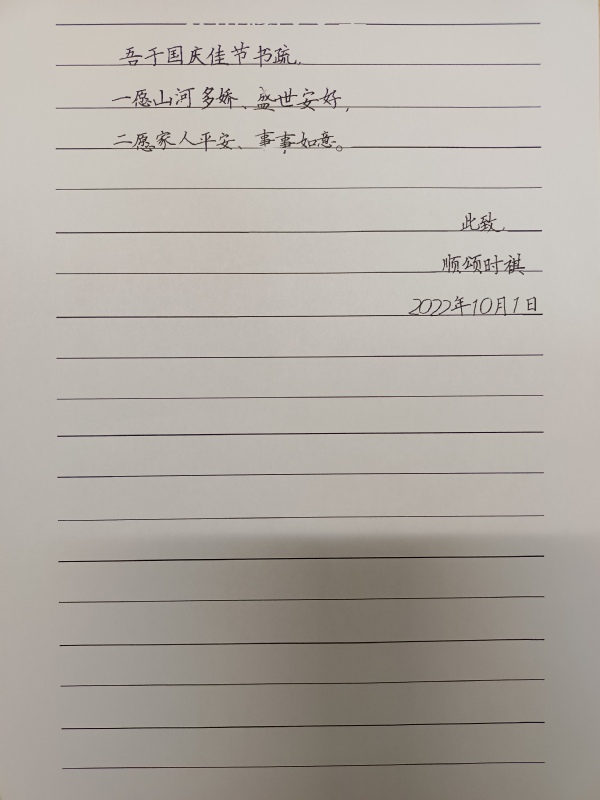 吾于国庆佳节书疏,
一愿山河多娇、盛世安好,
二愿家人平安、事事如意。
此致,
顺颂时祺
2022年10月1日